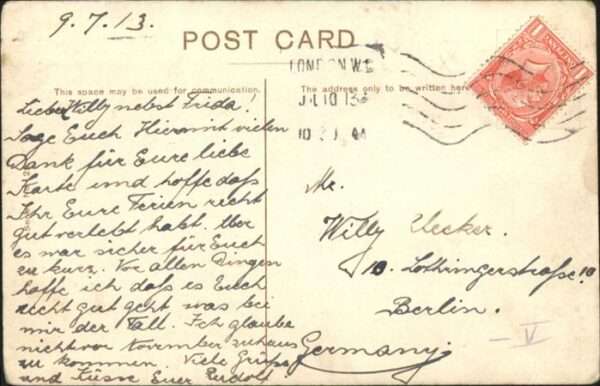 9.7.13.
POST CARD
LONDON W.C
JL 10 13
10 AM
This space may be used for communication.
The address only to be written here
Lieber Willy nebst Frida!
Sage Euch Hiermit vielen
Dank für Eure liebe
Karte und hoffe daß
Ihr Eure Ferien recht
gut verlebt habt. Aber
es war sicher für Euch
zu kurz. Vor allen Dingen
hoffe ich daß es Euch
recht gut geht was bei
mir der Fall. Ich glaube
nicht vor November zuhaus
zu kommen. Viele Grüße
und Küsse Euer Rudolf
Mr.
Willy Uecker.
10. Lothringerstraße. 10
Berlin.
Germany.
V